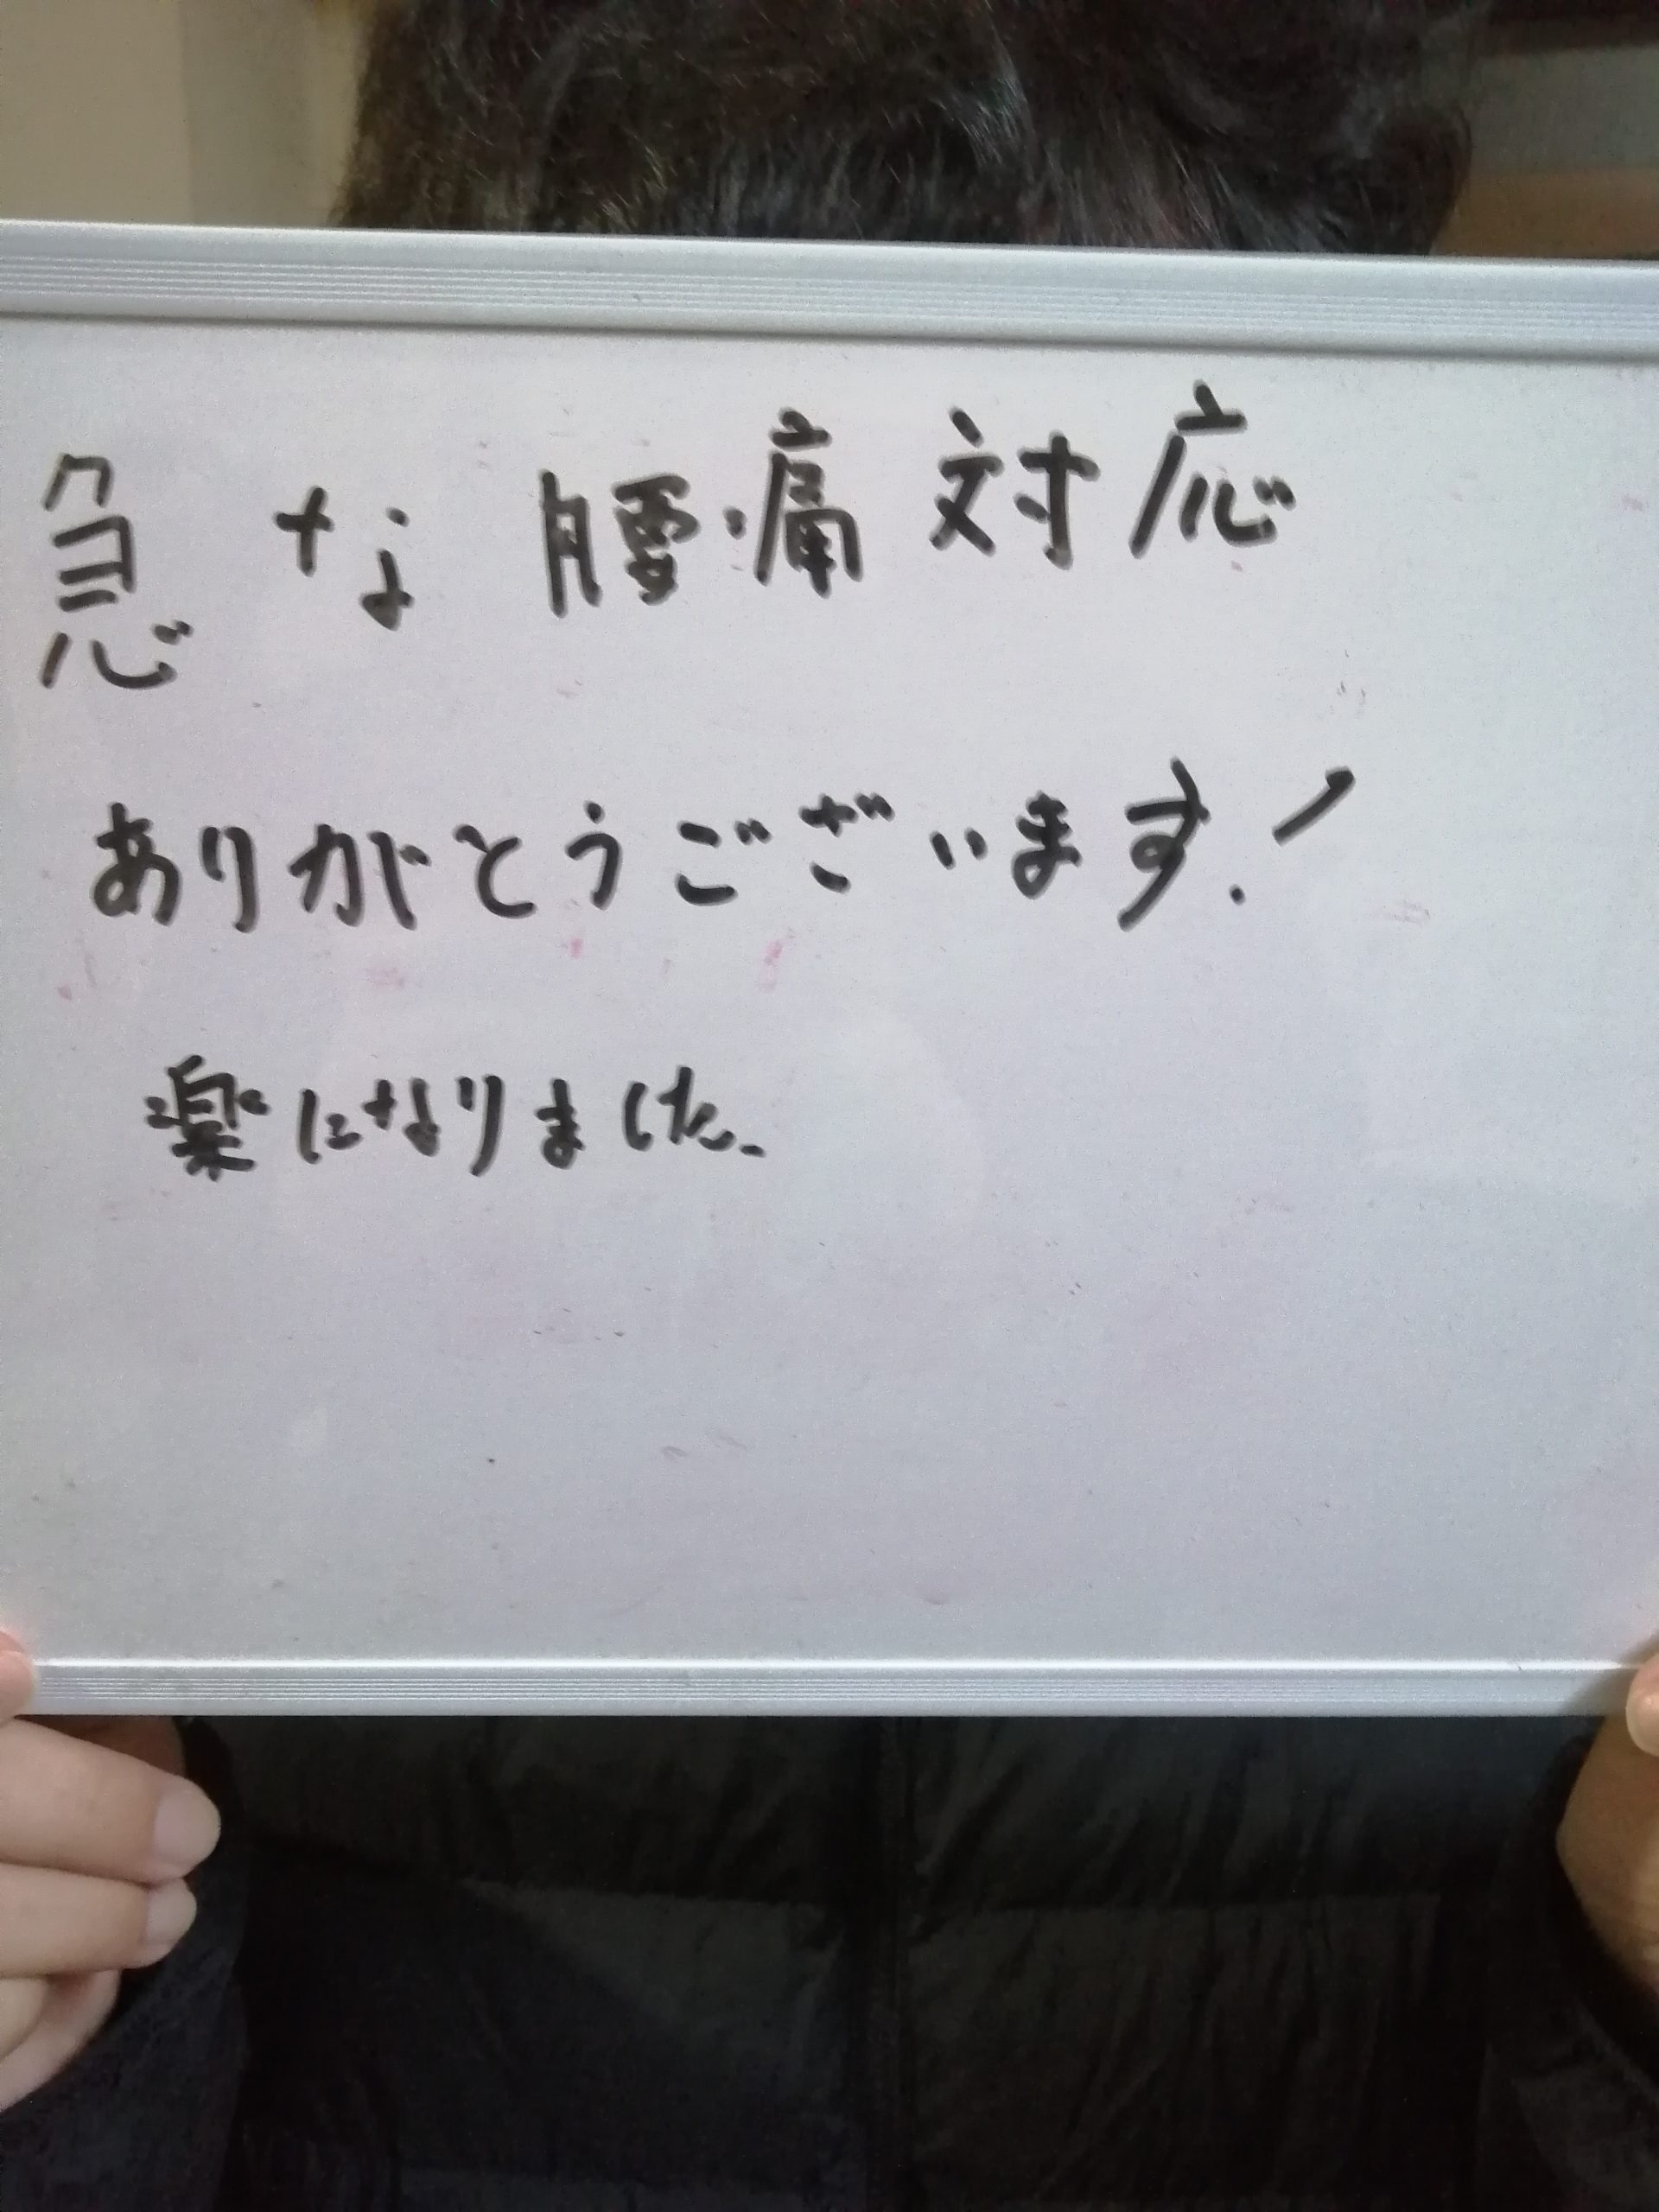 急な腰痛対応
ありがとうございます!
楽になりました.